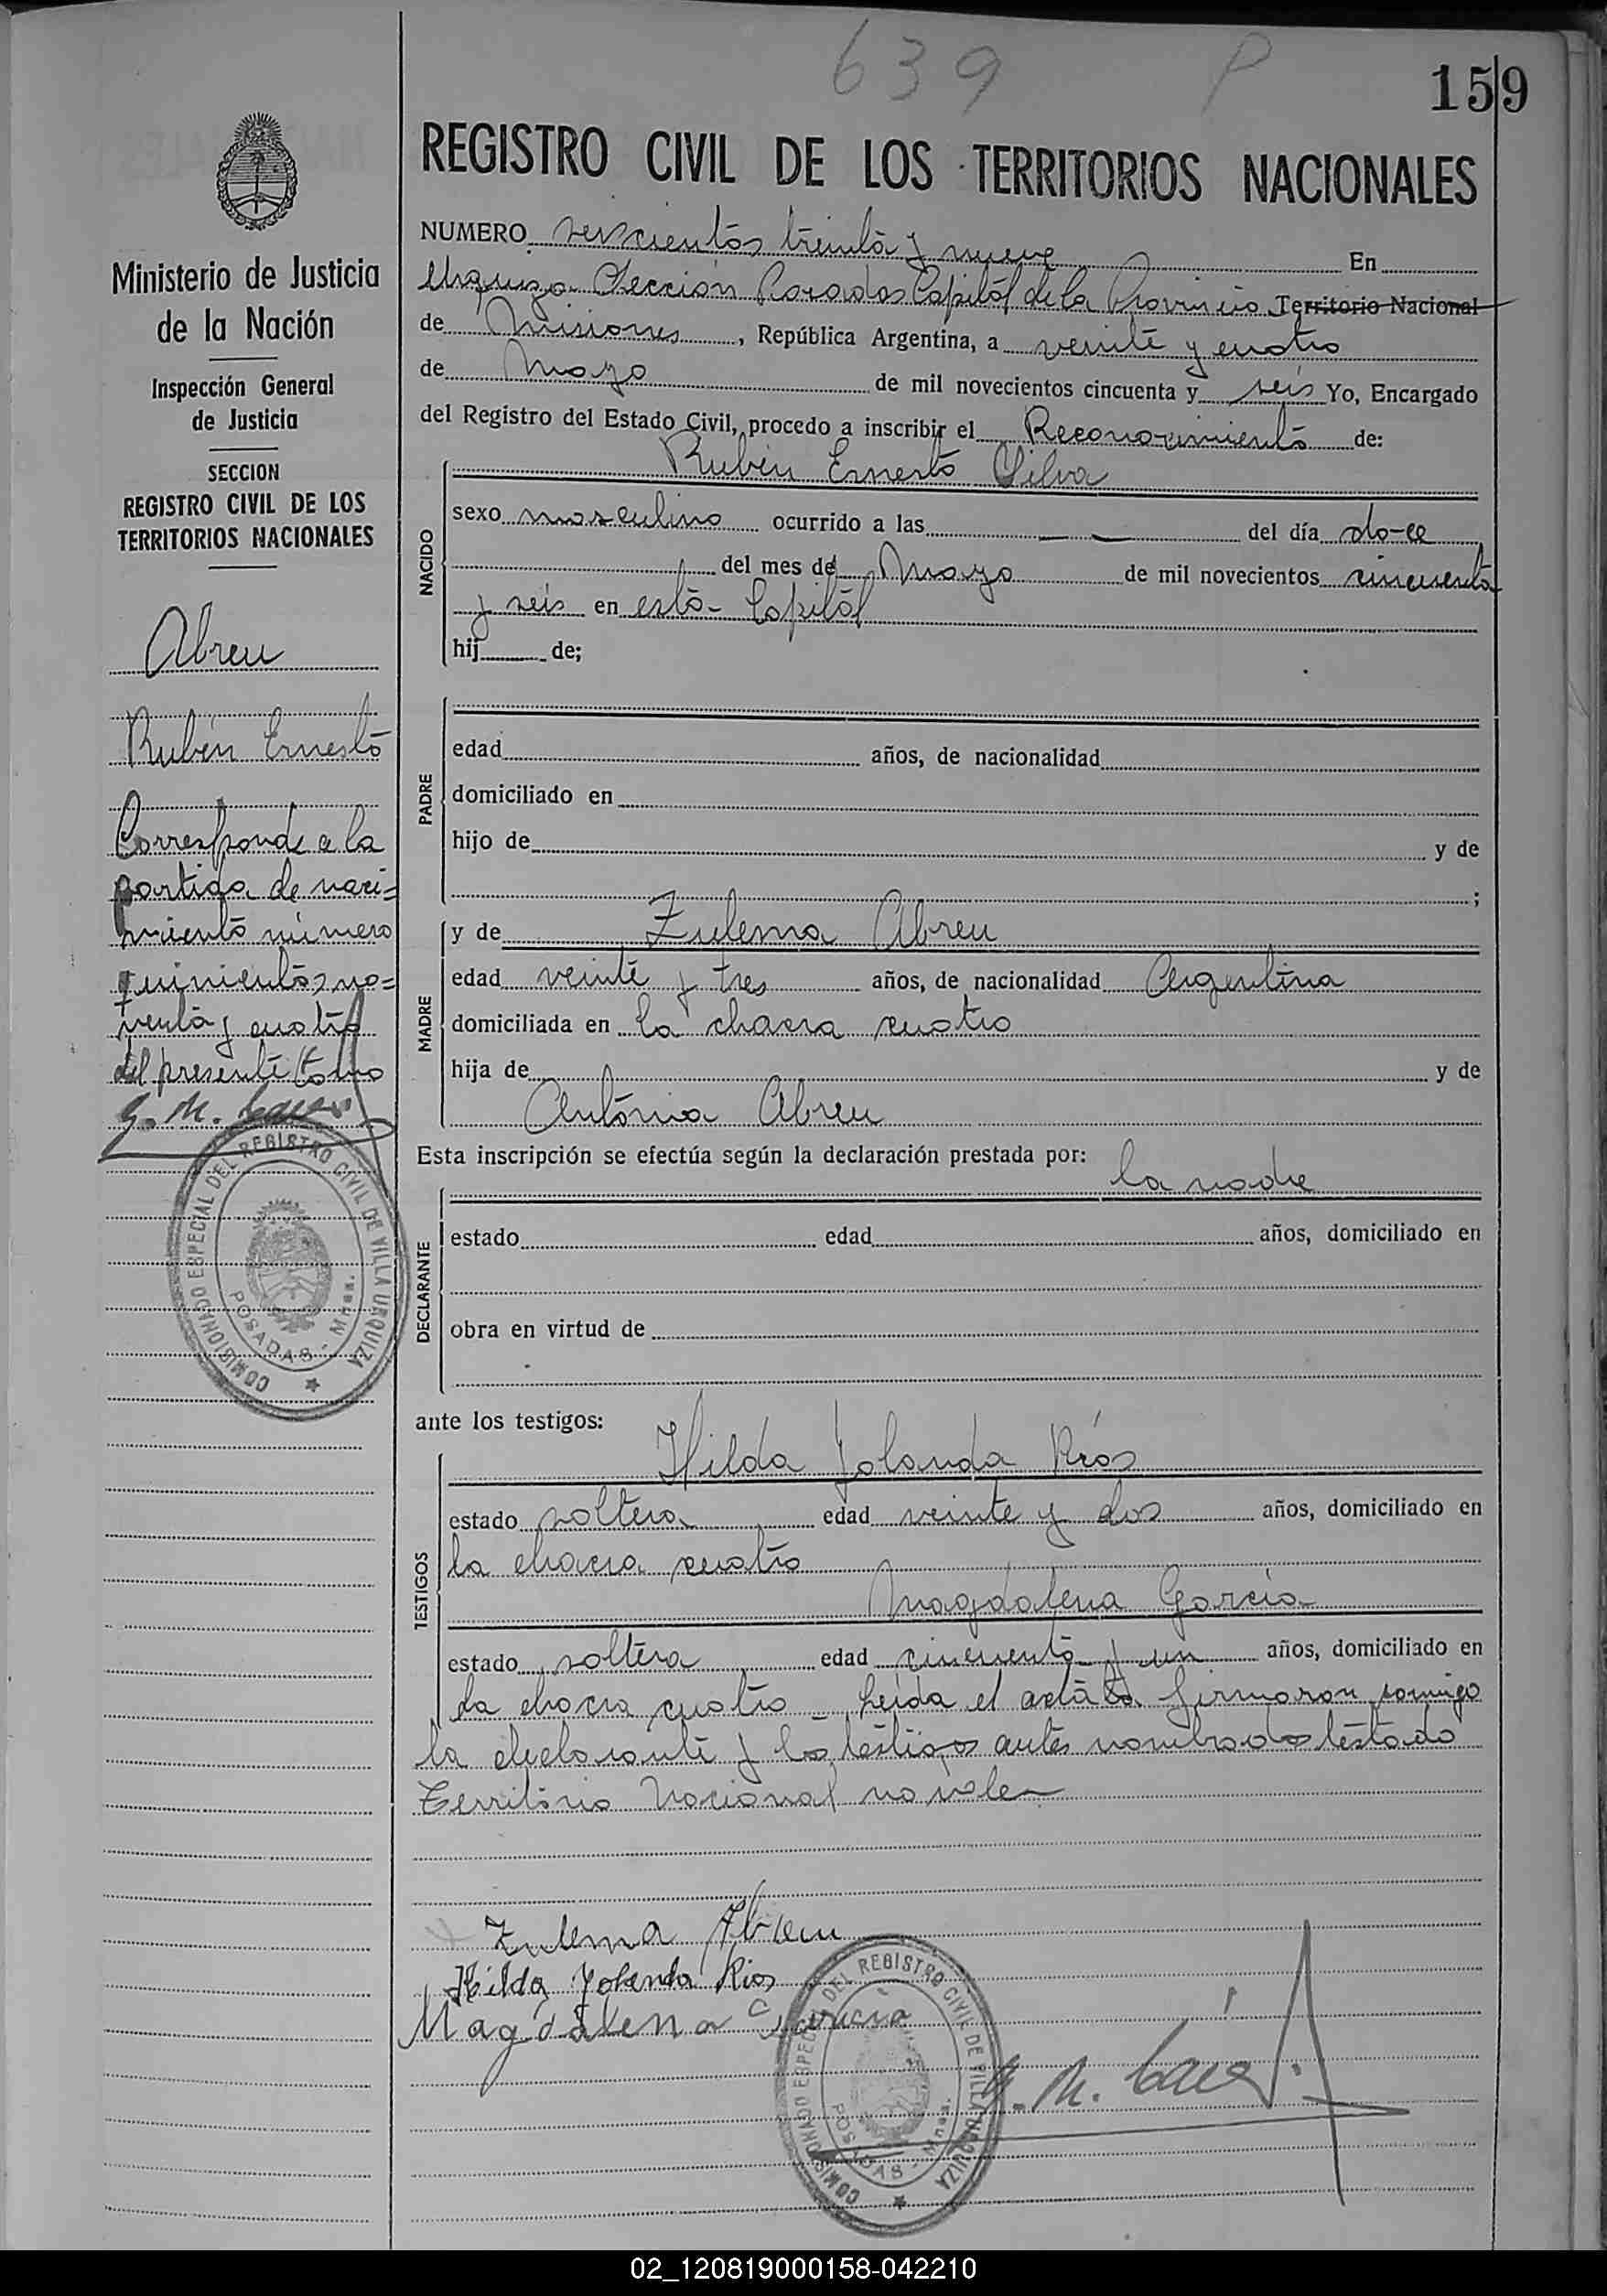 639 P
159
REGISTRO CIVIL DE LOS TERRITORIOS NACIONALES
Ministerio de Justicia
de la Nación
Inspección General
de Justicia
SECCION
REGISTRO CIVIL DE LOS
TERRITORIOS NACIONALES
Abreu
Rubén Ernesto
Corresponde a la
partida de naci-
miento número
quinientos no-
venta y cuatro
del presente tomo
COMISIONADO ESPECIAL DEL REGISTRO CIVIL DE VILLA URQUIZA
POSADAS - Mnes.
NUMERO seiscientos treinta y nueve En
Urquiza Sección Posadas Capital de la Provincia Territorio Nacional
de Misiones, República Argentina, a veinte y cuatro
de Mayo de mil novecientos cincuenta y seis Yo, Encargado
del Registro del Estado Civil, procedo a inscribir el Reconocimiento de:
Rubén Ernesto Silva
NACIDO
sexo masculino ocurrido a las — — del día do-ce
del mes de Mayo de mil novecientos cincuenta
y seis en esta Capital
hij de;
PADRE
edad años, de nacionalidad
domiciliado en
hijo de y de
;
MADRE
y de Zulema Abreu
edad veinte y tres años, de nacionalidad Argentina
domiciliada en la chacra cuatro
hija de y de
Antonia Abreu
Esta inscripción se efectúa según la declaración prestada por:
la madre
DECLARANTE
estado edad años, domiciliado en
obra en virtud de
ante los testigos:
TESTIGOS
Hilda Yolanda Ríos
estado soltera edad veinte y dos años, domiciliado en
la chacra cuatro
Magdalena García
estado soltera edad cincuenta y un años, domiciliado en
la chacra cuatro - Leída el acta la firmaron conmigo
la declarante y los testigos antes nombrados testado
Territorio Nacional no vale
Zulema Abreu
Hilda Yolanda Rios
Magdalena Garcia
COMISIONADO ESPECIAL DEL REGISTRO CIVIL DE VILLA URQUIZA
POSADAS - Mnes.
02_120819000158-042210